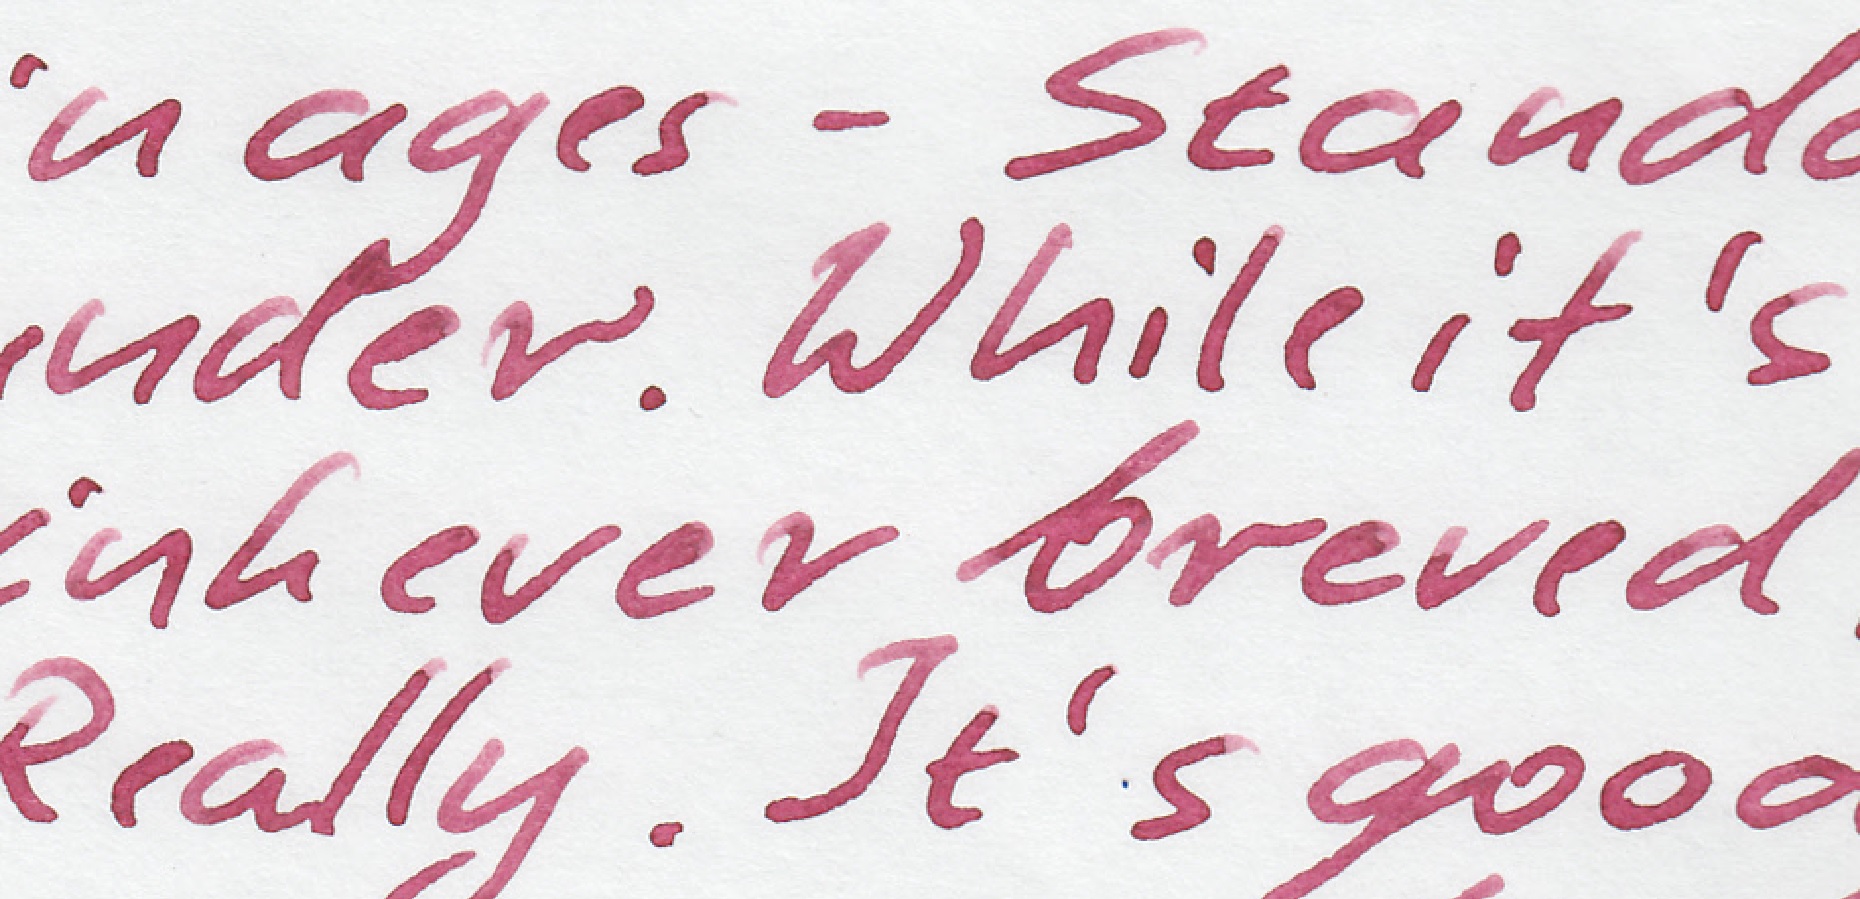 in ages - Standa
nder. While it's
ink ever breved
Really. It's good